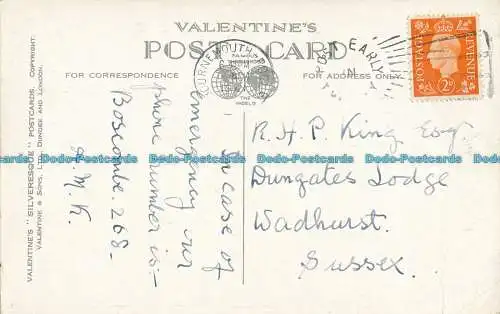 VALENTINE'S
POST CARD
FOR CORRESPONDENCE
FOR ADDRESS ONLY
VALENTINE'S "SILVERESQUE" POSTCARDS. COPYRIGHT.
VALENTINE & SONS, LTD., DUNDEE AND LONDON.
BOURNEMOUTH
POST EARLY
POSTAGE
REVENUE
2D
In case of
emergency our
phone number is:-
Boscombe. 268-
H.M.K.
R. H. P. King Esq
Dungates Lodge
Wadhurst.
Sussex.
Dodo-Postcards
Dodo-Postcards
Dodo-Postcards
Dodo-Postcards
Dodo-Postcards